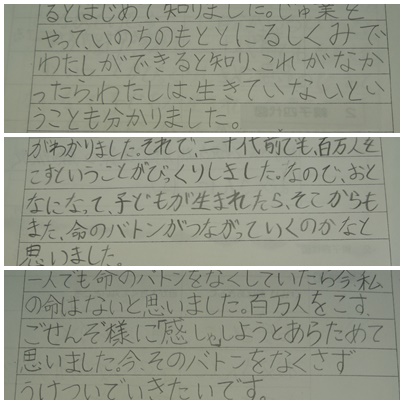 るとはじめて、知りました。じゅ業を
やって、いのちのもととにるしくみで
わたしができると知り、これがなか
ったら、わたしは、生きていないとい
うことも分かりました。
がわかりました。それで、二十代前でも、百万人を
こすということがびっくりしました。なので、おと
なになって、子どもが生まれたら、そこからも
また、命のバトンがつながっていくのかなと
思いました。
一人でも命のバトンをなくしていたら今、私
の命はないと思いました。百万人をこす、
ごせんぞ様に「感しゃ」しようとあらためて
思いました。今、そのバトンをなくさず
うけついでいきたいです。